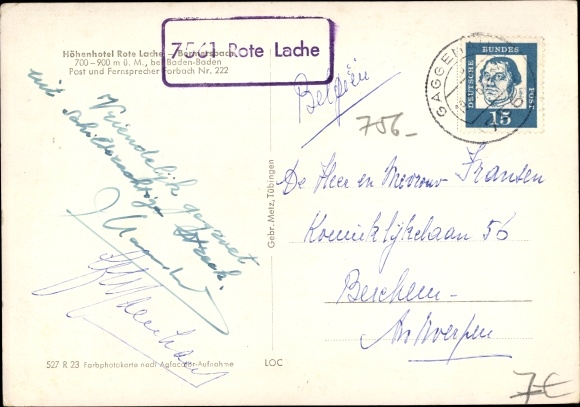 Höhenhotel Rote Lache – Bermersbach
700 – 900 m ü. M., bei Baden-Baden
Post und Fernsprecher Forbach Nr. 222
7561 Rote Lache
Vriendelijk gegroet
uit schilderachtige streek.
Gebr. Metz, Tübingen
527 R 23 Farbphotokarte nach Agfacolor-Aufnahme
LOC
GAGGEN
DEUTSCHE
BUNDES
POST
15
België
756-
De Heer en Mevrouw Fransen
Koninklijkelaan 56
Berchem-
Antwerpen
7€